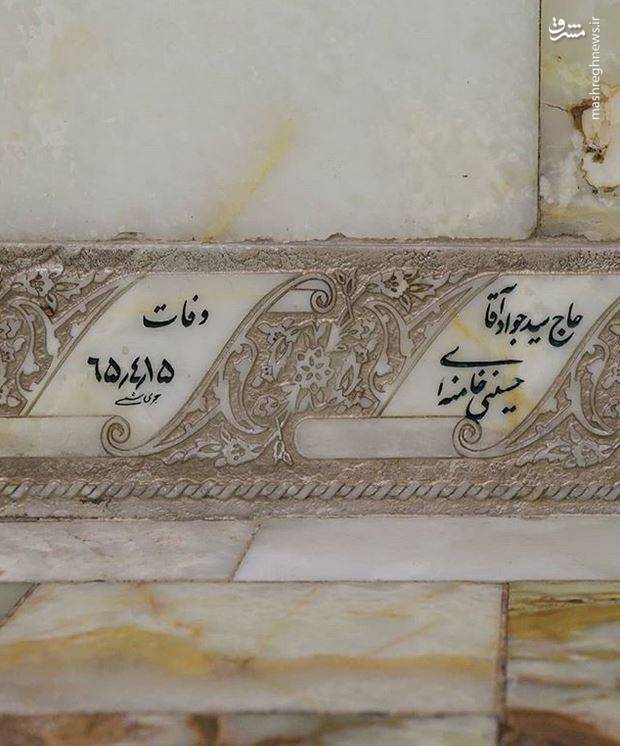 مشرق
mashreghnews.ir
حاج سید جواد آقا
حسینی خامنه‌ای
وفات
۶۵٫۴٫۱۵
هجری شمسی